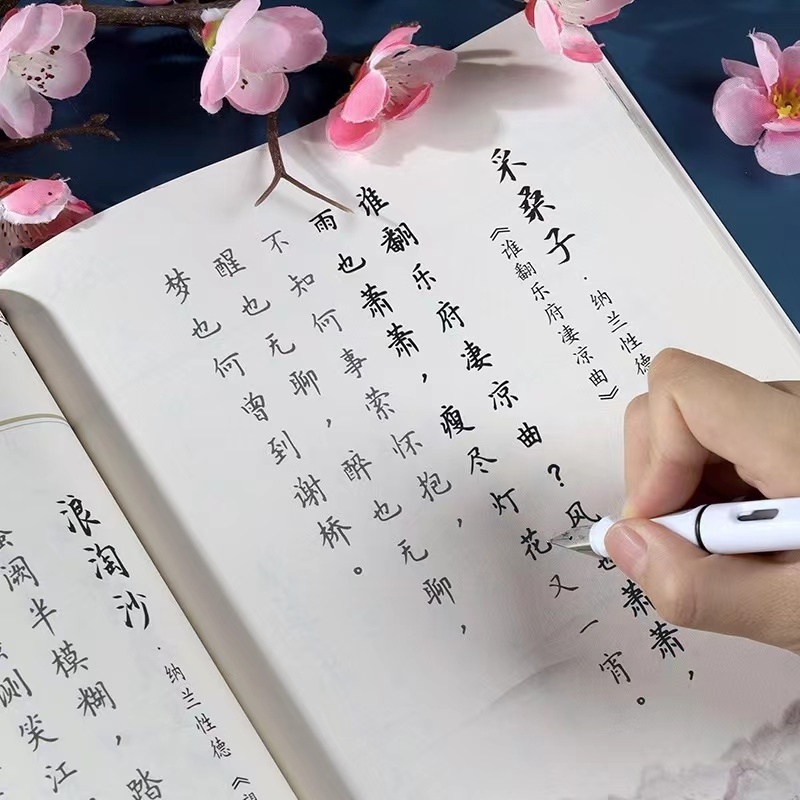 采桑子
·纳兰性德
《谁翻乐府凄凉曲》
谁翻乐府凄凉曲？风也萧萧，
雨也萧萧，瘦尽灯花又一宵。
不知何事萦怀抱，
醒也无聊，醉也无聊，
梦也何曾到谢桥。
浪淘沙
·纳兰性德
阙半模糊，踏
测笑江